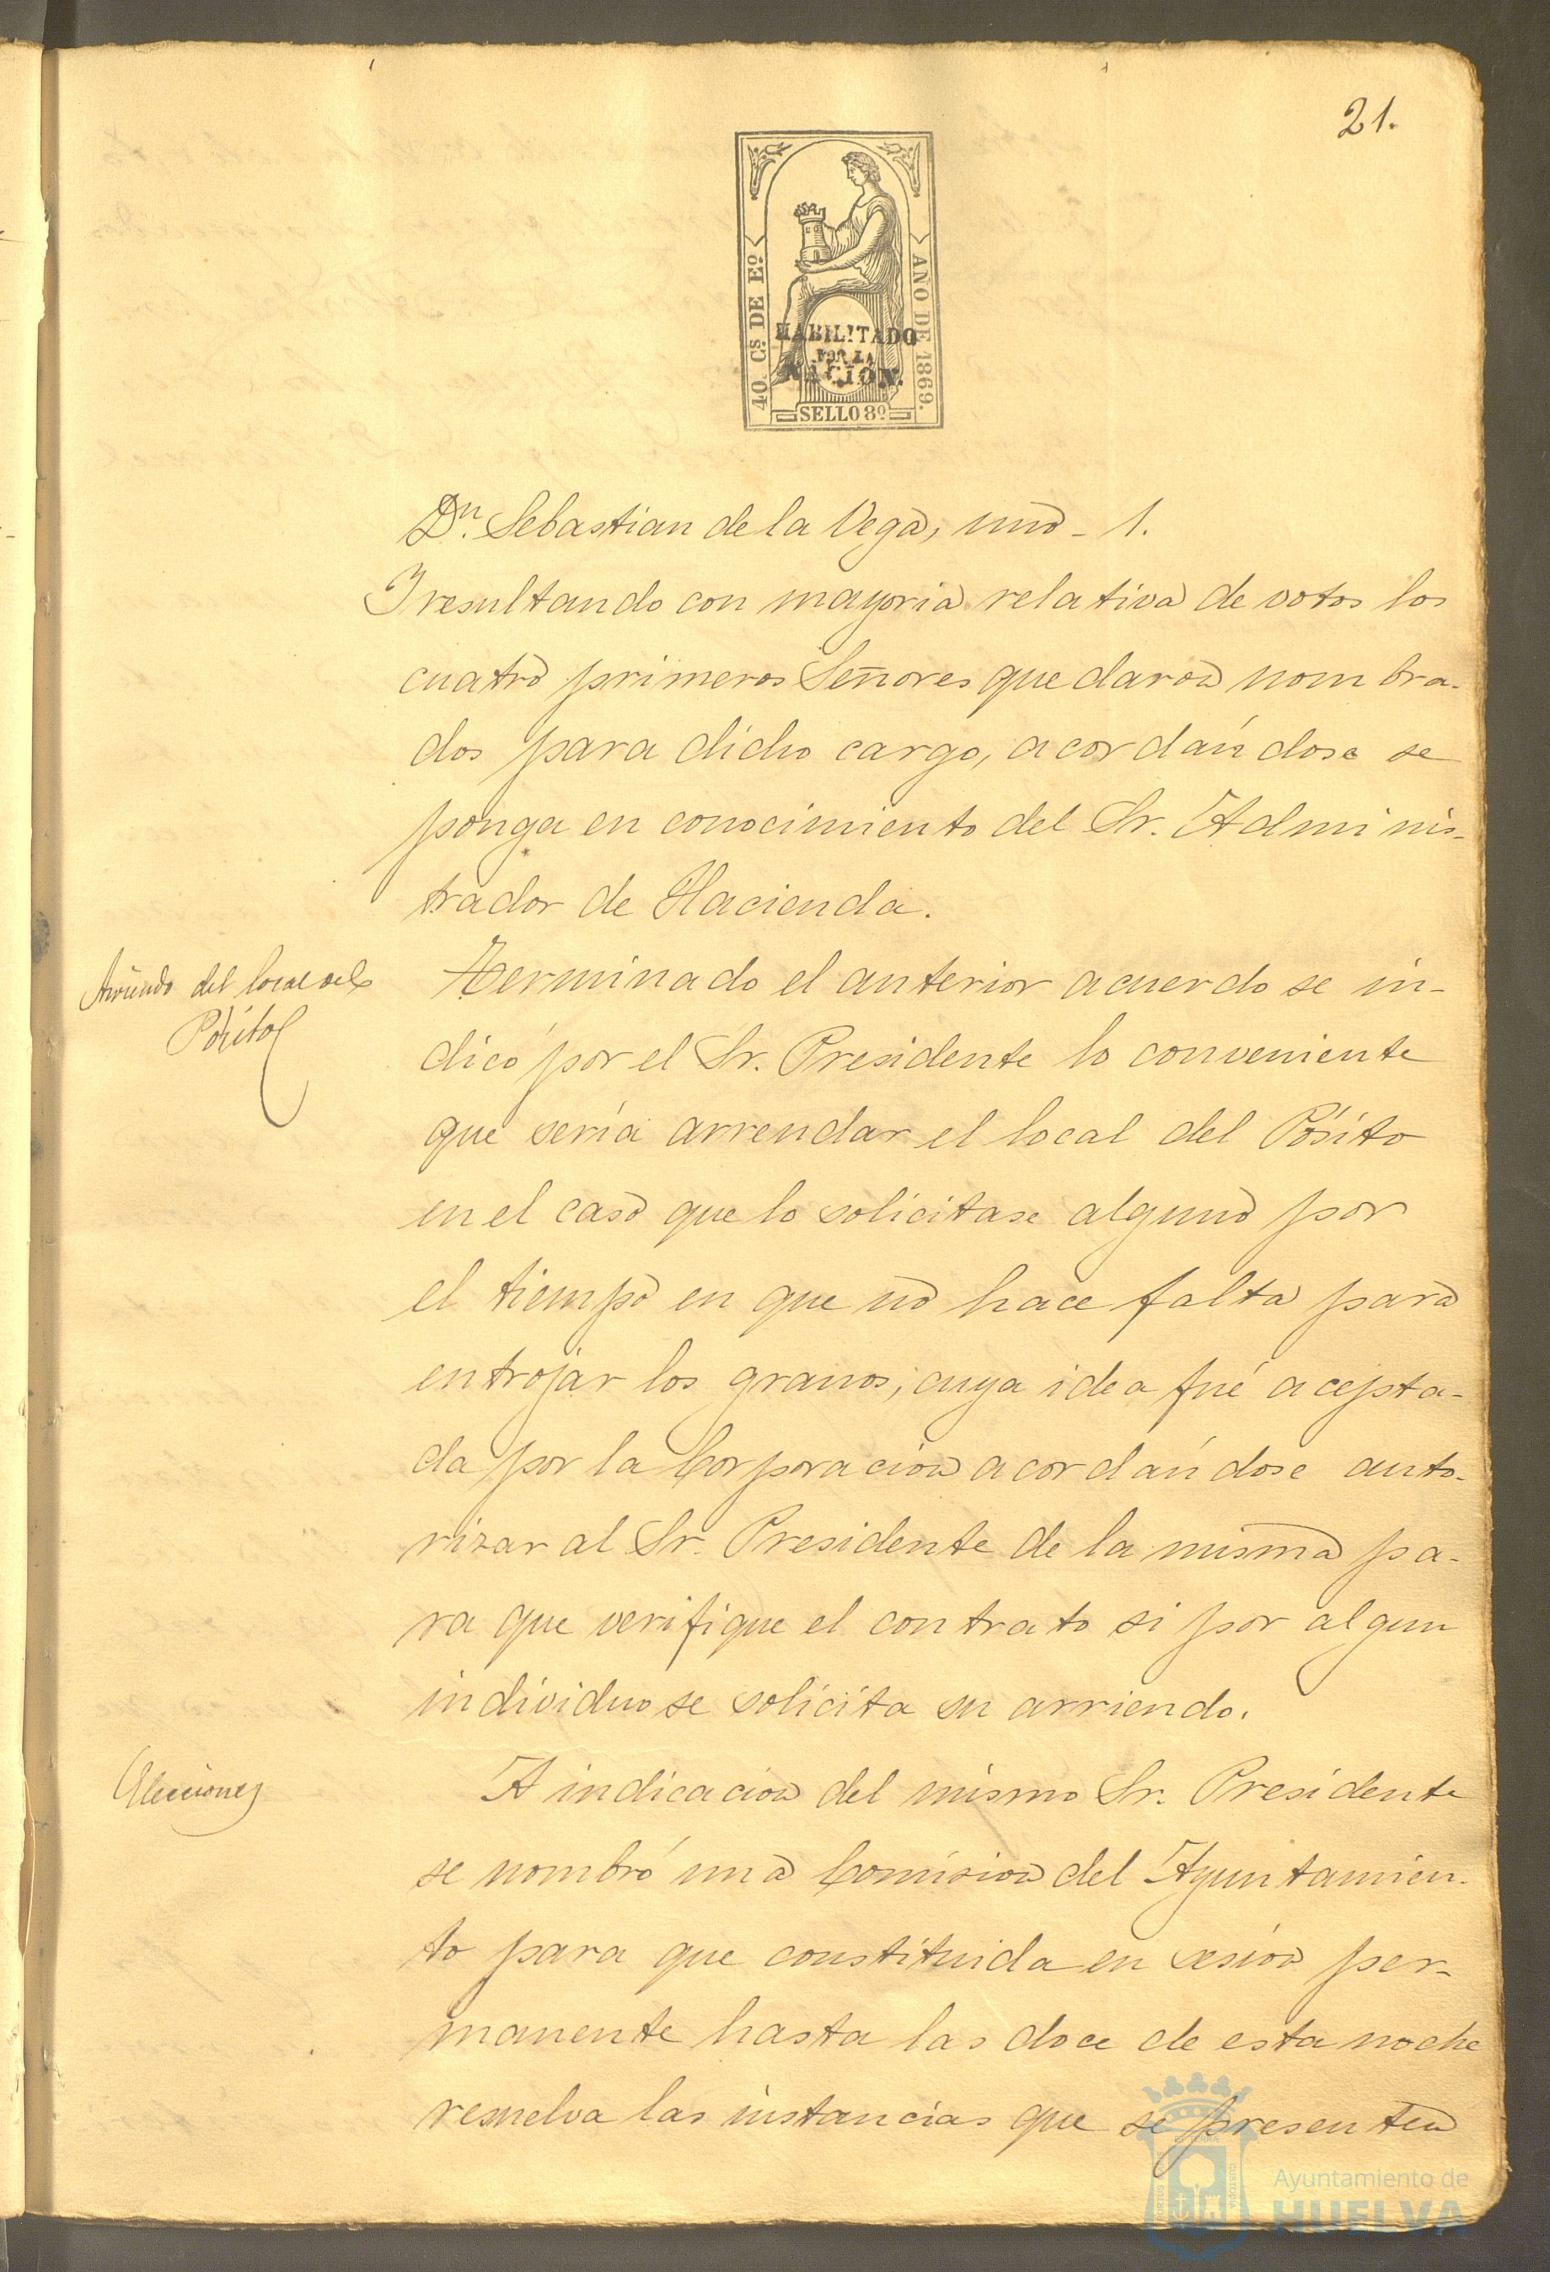 21.
40. Cs. DE Eº
AÑO DE 1869.
HABILITADO
POR LA
NACION.
SELLO 8º
Dn. Sebastian de la Vega, uno - 1.
Y resultando con mayoria relativa de votos los
cuatro primeros Señores quedaron nombra-
dos para dicho cargo, acordándose se
ponga en conocimiento del Sr. Adminis-
trador de Hacienda.
Arriendo del local del
Pósito
Terminado el anterior acuerdo se in-
dicó por el Sr. Presidente lo conveniente
que sería arrendar el local del Pósito
en el caso que lo solicitase alguno por
el tiempo en que no hace falta para
entrojar los granos, cuya idea fué acepta-
da por la Corporacion acordándose auto-
rizar al Sr. Presidente de la misma pa-
ra que verifique el contrato si por algun
individuo se solicita su arriendo.
Elecciones
A indicacion del mismo Sr. Presidente
se nombró una Comision del Ayuntamien-
to para que constituida en sesion per-
manente hasta las doce de esta noche
resuelva las instancias que se presenten
Ayuntamiento de
HUELVA